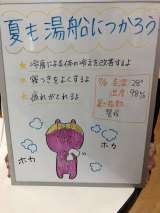 夏も湯船につかろう
冷房による体の冷えを改善するよ
寝つきをよくするよ
疲れがとれるよ
7/6 気温 28°
湿度 98%
ホカ
ホカ